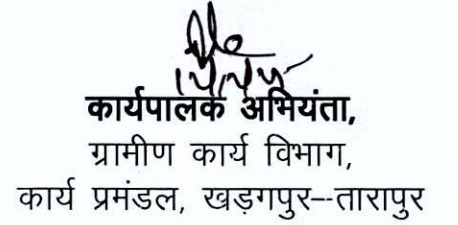 कार्यपालक अभियंता,
ग्रामीण कार्य विभाग,
कार्य प्रमंडल, खड़गपुर--तारापुर